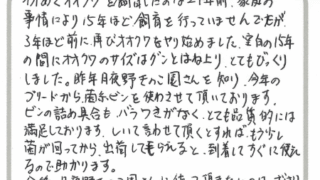 初めてオオクワを飼育したのは21年前、家庭の
事情により15年ほど飼育を行っていませんでたが、
3年ほど前に再びオオクワをやり始めました。空白の15年
の間にオオクワのサイズはグンとはね上り、とてもびっくり
しました。昨年月夜野きのこ園さんを知り、今年の
ブリードから、菌糸ビンを使わさせて頂いております。
ビンの詰め具合も、バラつきがなく、とても品質的には
満足しております。しいて言わせて頂くとすれば、もう少し
菌が回ってから、出荷してもらえると、到着してすぐに使え
るので助かります。